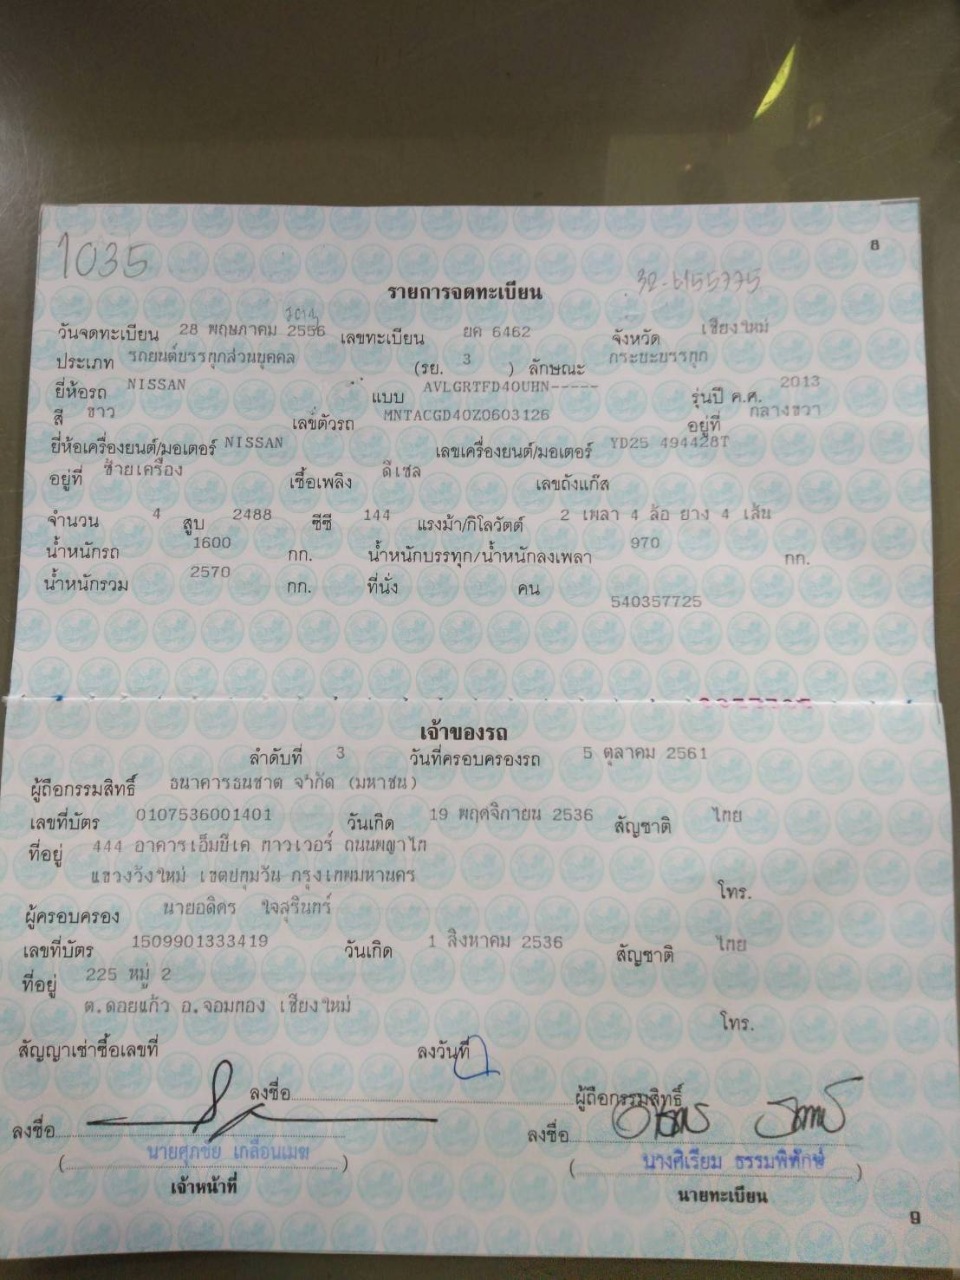 8
1035
32-6155775
รายการจดทะเบียน
2013
วันจดทะเบียน 28 พฤษภาคม 2556 เลขทะเบียน ยค 6462 จังหวัด เชียงใหม่
ประเภท รถยนต์บรรทุกส่วนบุคคล (รย. 3 ) ลักษณะ กระยะบรรทุก
ยี่ห้อรถ NISSAN แบบ AVLGRTFD40UHN----- รุ่นปี ค.ศ. 2013
สี ขาว เลขตัวรถ MNTACGD40Z0603126 อยู่ที่ กลางขวา
ยี่ห้อเครื่องยนต์/มอเตอร์ NISSAN เลขเครื่องยนต์/มอเตอร์ YD25 494428T
อยู่ที่ ซ้ายเครื่อง เชื้อเพลิง ดีเซล เลขถังแก๊ส
จำนวน 4 สูบ 2488 ซีซี 144 แรงม้า/กิโลวัตต์ 2 เพลา 4 ล้อ ยาง 4 เส้น
น้ำหนักรถ 1600 กก. น้ำหนักบรรทุก/น้ำหนักลงเพลา 970 กก.
น้ำหนักรวม 2570 กก. ที่นั่ง คน
540357725
เจ้าของรถ
ลำดับที่ 3 วันที่ครอบครองรถ 5 ตุลาคม 2561
ผู้ถือกรรมสิทธิ์ ธนาคารธนชาต จำกัด (มหาชน)
เลขที่บัตร 0107536001401 วันเกิด 19 พฤศจิกายน 2536 สัญชาติ ไทย
ที่อยู่ 444 อาคารเอ็มบีเค ทาวเวอร์ ถนนพญาไท
แขวงวังใหม่ เขตปทุมวัน กรุงเทพมหานคร
โทร.
ผู้ครอบครอง นายอดิศร ใจสุรินทร์
เลขที่บัตร 1509901333419 วันเกิด 1 สิงหาคม 2536 สัญชาติ ไทย
ที่อยู่ 225 หมู่ 2
ต.ดอยแก้ว อ.จอมทอง เชียงใหม่
โทร.
สัญญาเช่าซื้อเลขที่ ลงวันที่
ลงชื่อ ผู้ถือกรรมสิทธิ์
ลงชื่อ ลงชื่อ
(นายศุภชัย เกลื่อนเมฆ) (นางศิเรียม ธรรมพิทักษ์)
เจ้าหน้าที่ นายทะเบียน
9